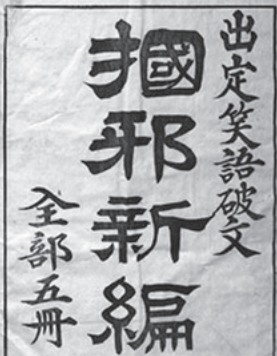 出定笑語破文
摑邪新編
全部五冊